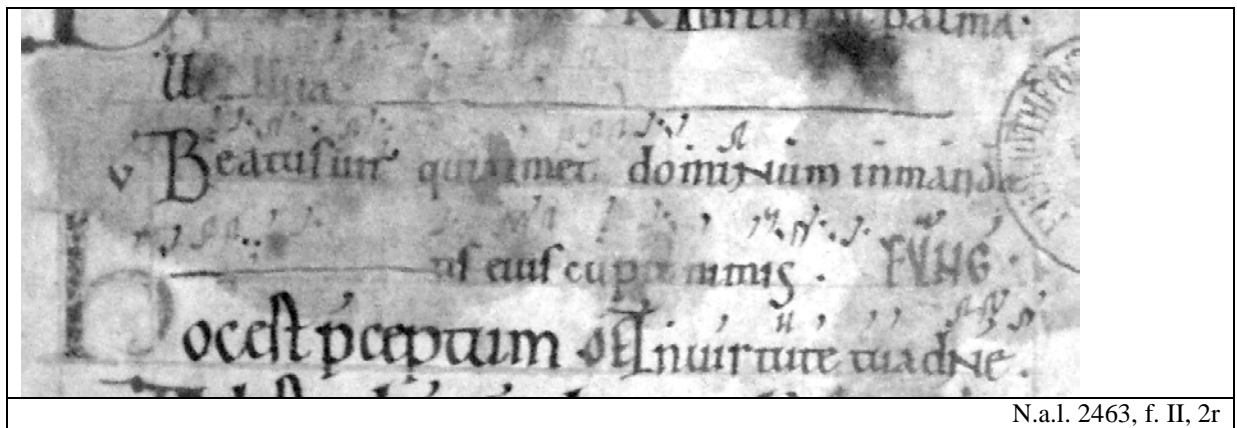 palma·
v Beatus uir qui timet dominum in manda
tis eius cupit nimis . EVNG ·
Hoc est p̄ceptum OF In uirtute tua dn̄e .
N.a.l. 2463, f. II, 2r